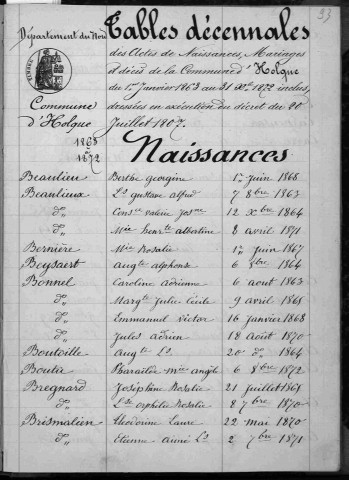 93
Département du Nord
Tables décennales
des Actes de Naissances, Mariages
et décès de la Commune d'Holque
du 1er janvier 1863 au 31 Xbre 1872 inclus,
dressées en exécution du décret du 20
Juillet 1807.
TIMBRE
Commune
d'Holque
1863
à
1872
Naissances
Beaulieu Berthe georgine 1er juin 1868
Beaulieux Ls gustave alfred 7 8bre 1863
d° Consce valérie Josne 12 Xbre 1864
d° Mie Henrtte albertine 8 avril 1871
Bernière Mie Rosalie 1er juin 1867
Beysaert Augte alphonse 6 1864
Bonnel Caroline adrienne 6 aout 1863
d° Margte Julie Cécile 9 avril 1865
d° Emmanuel Victor 16 janvier 1868
d° Jules adrien 18 Août 1870
Boutoille Augte Ls 20 d° 1864
Bouta mie angèle 6 8bre 1872
Bregnard Joséphine Rosalie 21 juillet 1868
d° Lse orphélie Rosalie 8 7bre 1870
Brismalien Léodorine Laure 22 mai 1870
d° Etienne aimé Ls 2 7bre 1871